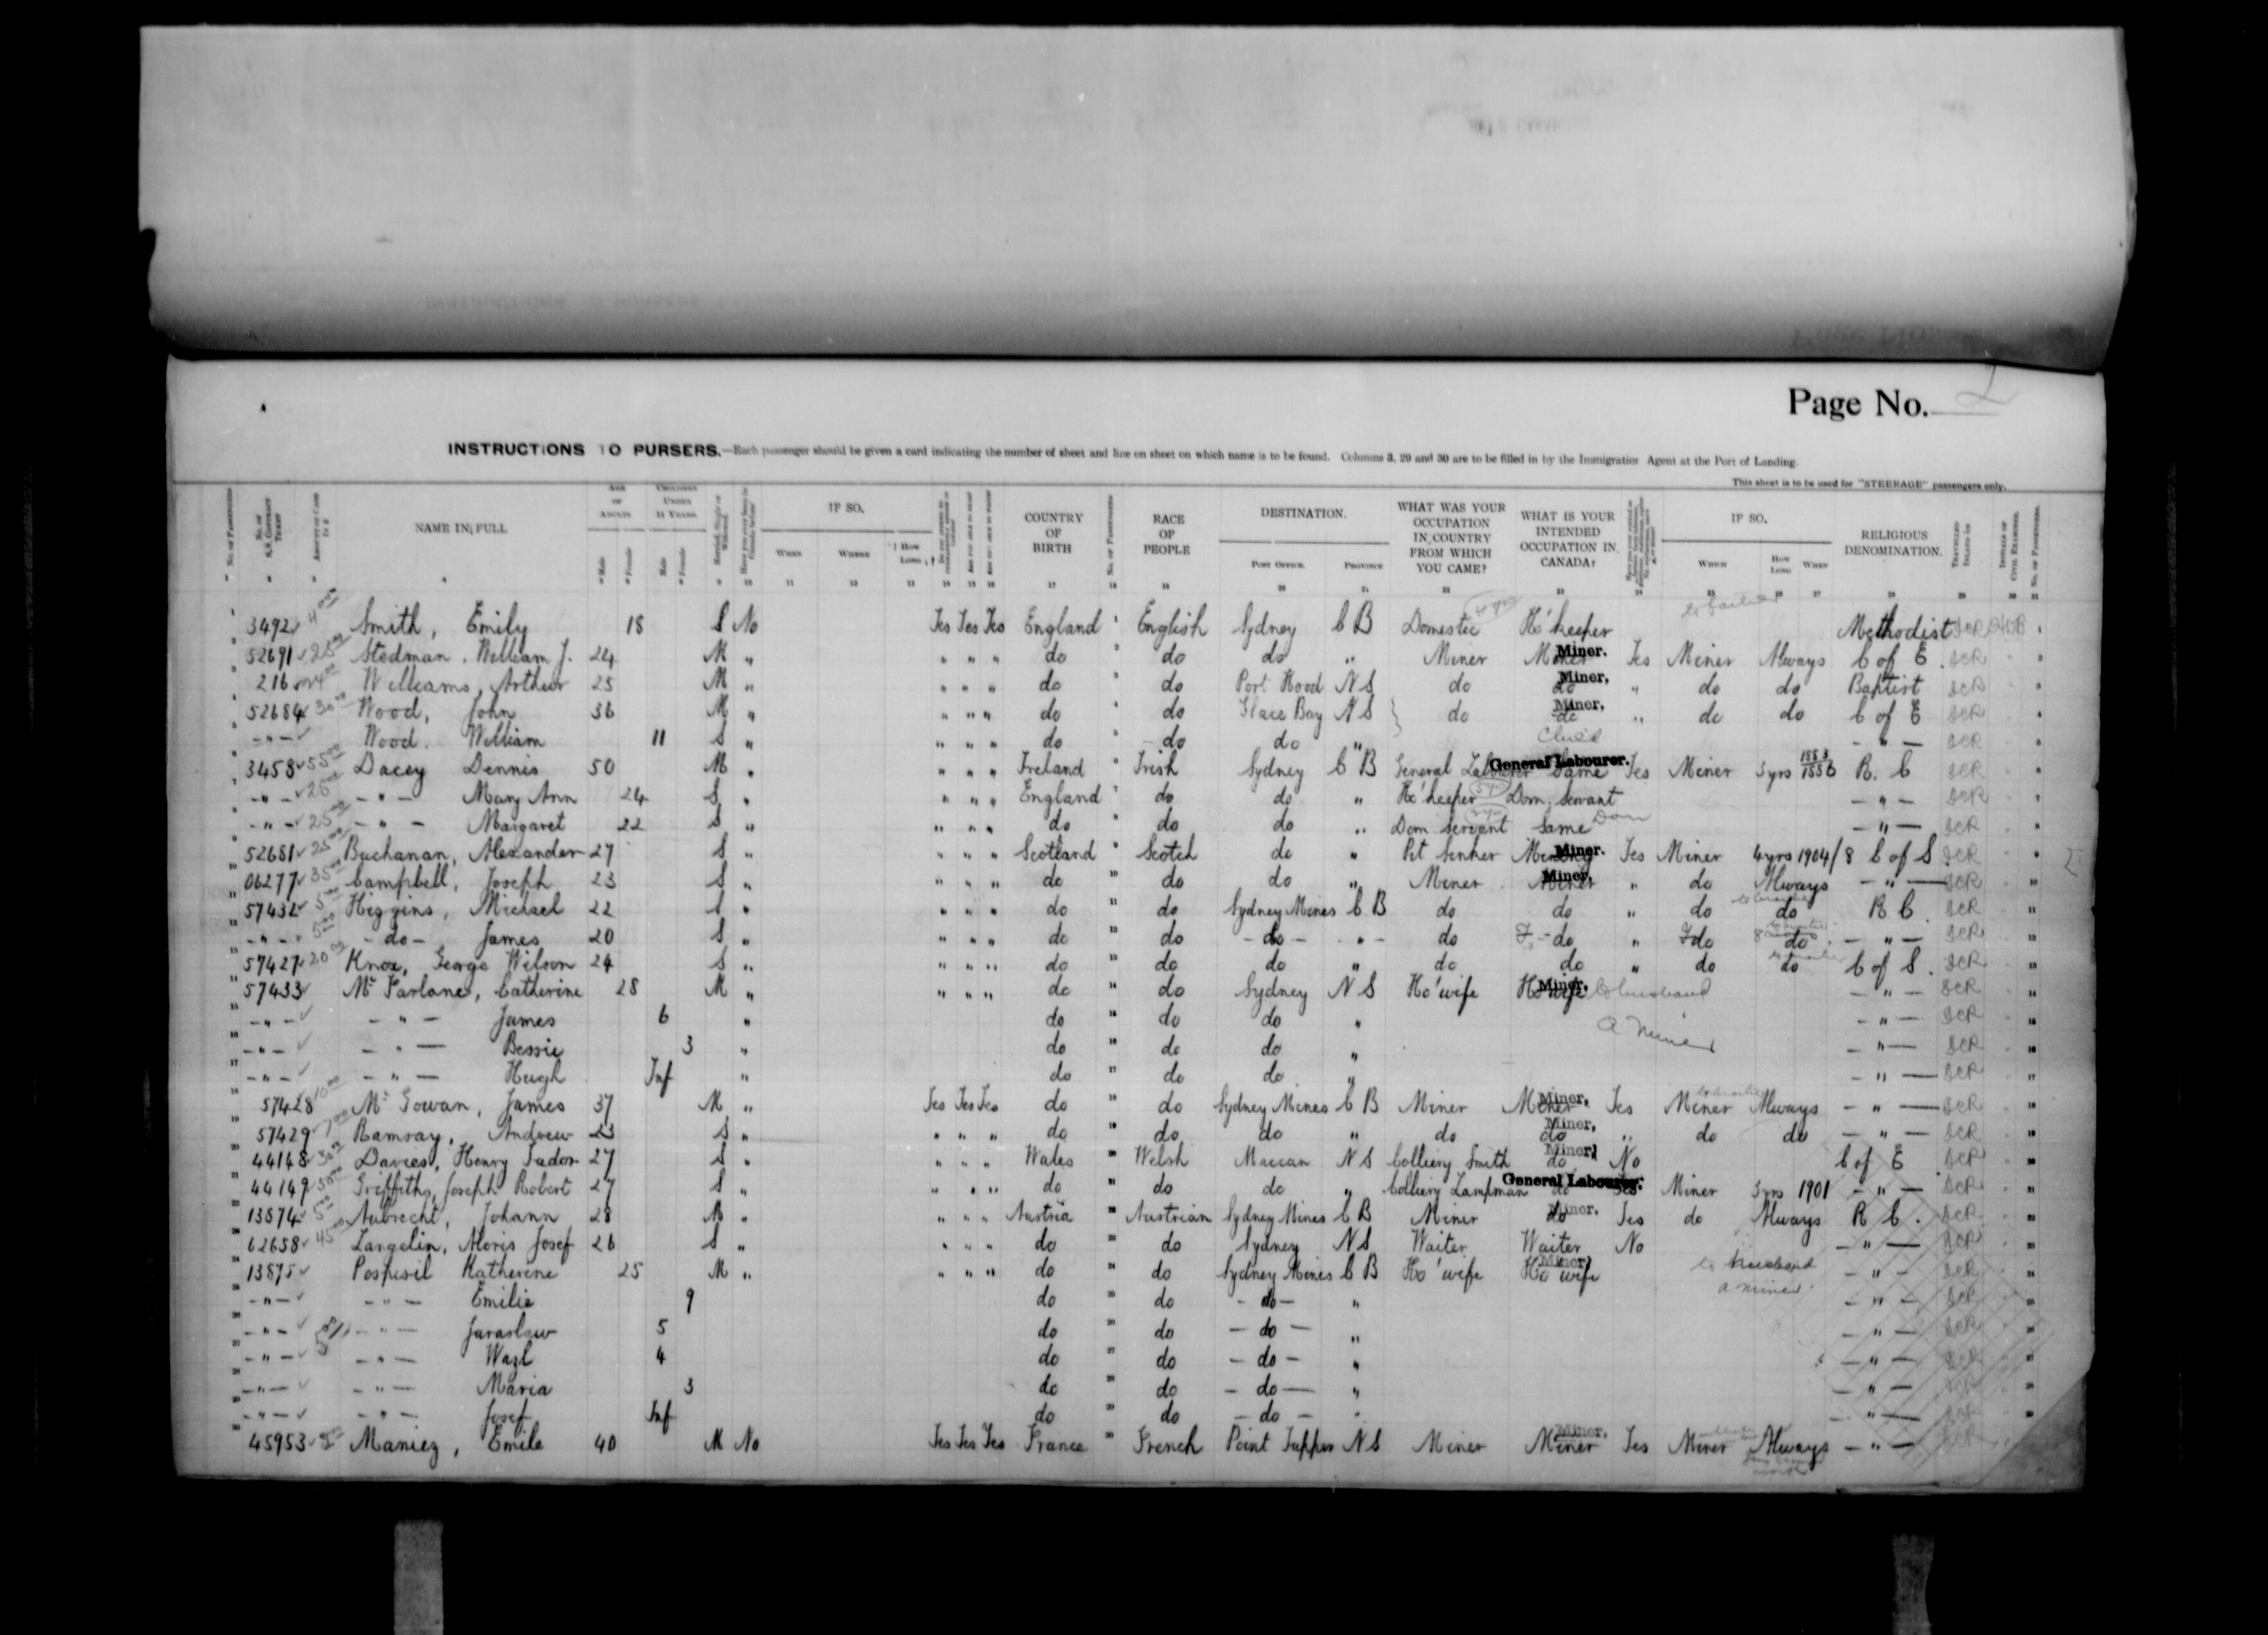 Page No. 2
INSTRUCTIONS TO PURSERS.—Each passenger should be given a card indicating the number of sheet and line on sheet on which name is to be found. Columns 3, 29 and 30 are to be filled in by the Immigration Agent at the Port of Landing.
This sheet is to be used for "STEERAGE" passengers only.
NAME IN FULL AGE OF ADULTS CHILDREN UNDER 14 YEARS IF SO, COUNTRY OF BIRTH RACE OF PEOPLE DESTINATION. WHAT WAS YOUR OCCUPATION IN COUNTRY FROM WHICH YOU CAME? WHAT IS YOUR INTENDED OCCUPATION IN CANADA? IF SO, RELIGIOUS DENOMINATION.
Male Female Male Female WHEN WHERE HOW LONG POST OFFICE. PROVINCE WHICH HOW LONG WHEN
1 3492 4 00 Smith, Emily 18 S No Yes Yes Yes England English Sydney C B Domestic Ho' keeper Methodist SCR 1
2 52691 25 00 Stedman, William J. 24 M " " " " do do do " Miner Miner Miner. Yes Miner Always C of E. SCR 2
3 216 Williams, Arthur 25 M " " " " do do Port Hood N S do do Miner, " do do Baptist SCR 3
4 52684 30 00 Wood, John 36 M " " " " do do Glace Bay N S do do Miner, " do do C of E SCR 4
5 - " - Wood. William 11 S " " " " do do do " Child - " - SCR 5
6 3458 55 00 Dacey Dennis 50 M " " " " Ireland Irish Sydney C B General Labourer Same General Labourer. Yes Miner 3 yrs 1883 1886 R. C SCR 6
7 - " - 25 00 - " - Mary Ann 24 S " " " " England do do " Ho' keeper Dom. Servant - " - SCR 7
8 - " - 25 00 - " - Margaret 22 S " " " " do do do " Dom. Servant Same Dom - " - SCR 8
9 52681 25 00 Buchanan, Alexander 27 S " " " " Scotland Scotch do " Pit Sinker Mining Miner. Yes Miner 4 yrs 1904/8 C of S. SCR 9
10 06277 35 00 Campbell, Joseph 23 S " " " " do do do " Miner Miner Miner, " do Always - " - SCR 10
11 57432 5 00 Higgins, Michael 22 S " " " " do do Sydney Mines C B do do " do do R C. SCR 11
12 - " - 5 00 - do - James 20 S " " " " do do - do - - " - do do " do do - " - SCR 12
13 57427 20 00 Knox, George Wilson 24 S " " " " do do do " do do " do do C of S. SCR 13
14 57433 Mc Farlane, Catherine 28 M " " " " do do Sydney N S Ho' wife Ho' wife Miner, to husband - " - SCR 14
15 - " - - " - James 6 " do do do " a miner - " - SCR 15
16 - " - - " - Bessie 3 " do do do " - " - SCR 16
17 - " - - " - Hugh Inf " do do do " - " - SCR 17
18 57428 10 00 Mc Gowan, James 37 M " Yes Yes Yes do do Sydney Mines C B Miner Miner Miner, Yes Miner Always - " - SCR 18
19 57429 7 00 Ramsay, Andrew 23 S " " " " do do do " do do Miner, " do do - " - SCR 19
20 44148 30 00 Davies, Henry Tudor 27 S " " " " Wales Welsh Maccan N S Colliery Smith do Miner, No C of E SCR 20
21 44149 50 00 Griffiths, Joseph Robert 27 S " " " " do do do " Colliery Lampman do General Labourer. Yes Miner 3 yrs 1901 - " - SCR 21
22 13874 5 00 Aubrecht, Johann 28 M " " " " Austria Austrian Sydney Mines C B Miner do Miner. Yes do Always R C. SCR 22
23 62658 45 00 Langelin, Alois Josef 26 S " " " " do do Sydney N S Waiter Waiter No - " - SCR 23
24 13875 Pospisil Katherine 25 M " " " " do do Sydney Mines C B Ho' wife Ho' wife Miner, to husband - " - SCR 24
25 - " - - " - Emilie 9 do do - do - " a miner - " - SCR 25
26 - " - - " - Jaraslaw 5 do do - do - " - " - SCR 26
27 - " - - " - Wazl 4 do do - do - " - " - SCR 27
28 - " - - " - Maria 3 do do - do - " - " - SCR 28
29 - " - - " - Josef Inf do do - do - " - " - SCR 29
30 45953 Maniez, Emile 40 M No Yes Yes Yes France French Point Tupper N S Miner Miner Miner, Yes Miner Always - " -